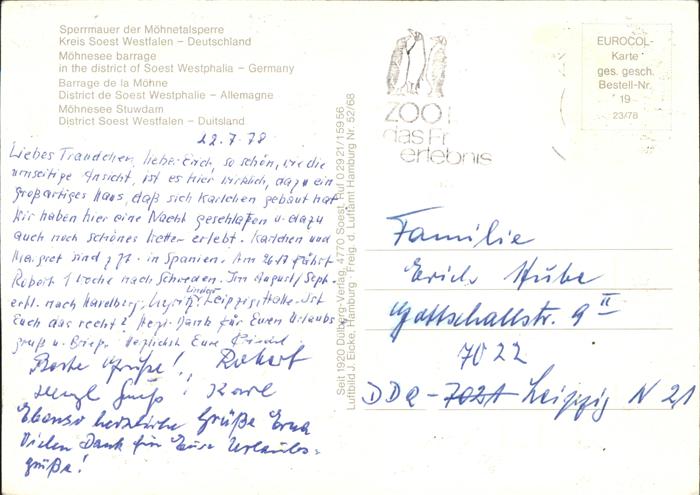 Sperrmauer der Möhnetalsperre
Kreis Soest Westfalen – Deutschland
Möhnesee barrage
in the district of Soest Westphalia – Germany
Barrage de la Möhne
District de Soest Westphalie – Allemagne
Möhnesee Stuwdam
District Soest Westfalen – Duitsland
22.7.78
Liebes Traudchen, lieber Erich, so schön, wie die
umseitige Ansicht, ist es hier wirklich, dazu ein
großartiges Haus, daß sich Karlchen gebaut hat
Wir haben hier eine Nacht geschlafen u. dazu
auch noch schönes Wetter erlebt. Karlchen und
Margret sind z.Zt. in Spanien. Am fährt
Robert 1 Woche nach Schweden. Im August/Sept.
evtl. nach Havelberg, Lindau
Leipzig, Halle. Ist
Euch das recht? Herzl. Dank für Euren Urlaubs
gruß u. Brief. Herzlichst Eure
Beste Grüße! Robert
Herzl Gruß! Karl
Ebenso herzliche Grüße Erna
Vielen Dank für Eure Urlaubs=
grüße!
Seit 1920 Dülberg-Verlag, 4770 Soest, Ruf 02921/15956
Luftbild J. Eicke, Hamburg - Freig. d. Luftamt Hamburg Nr. 52/68
ZOO
das Fr
erlebnis
EUROCOL-
Karte
ges. gesch.
Bestell-Nr.
19
23/78
Familie
Erich Hube
Gottschallstr. 9 II
7022
DDR - 7021 Leipzig N 21